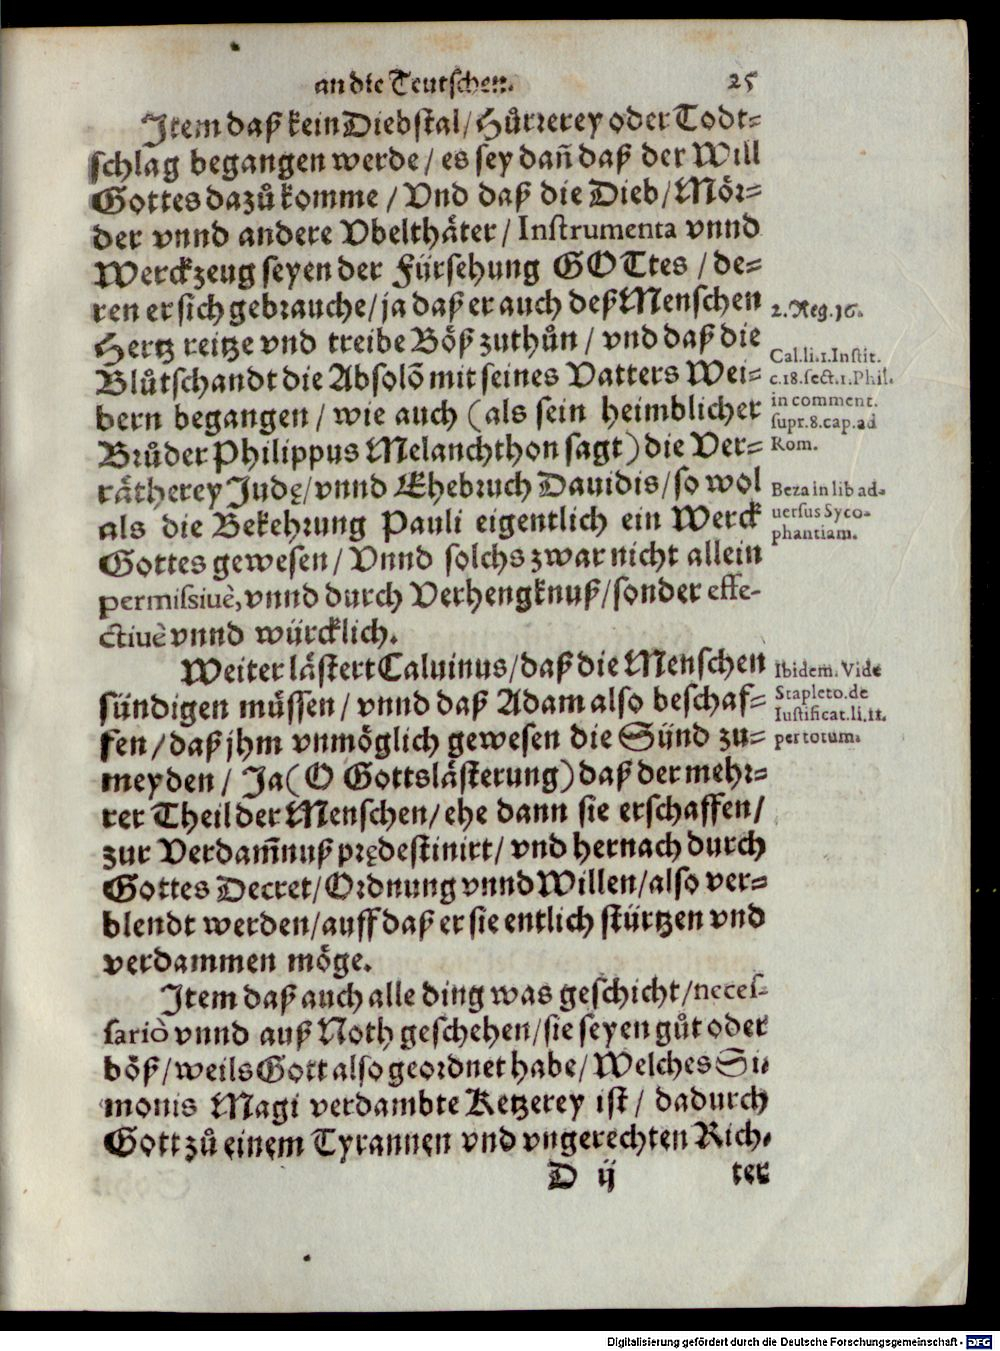 an die Teutschen. 25
Item daß kein Diebstal/ Hůrrerey oder Todt-
schlag begangen werde/ es sey dañ daß der Will
Gottes dazů komme/ Vnd daß die Dieb/ Mör-
der vnnd andere Vbelthäter/ Instrumenta vnnd
Werckzeug seyen der Fürsehung GOTtes/ de-
ren er sich gebrauche/ ja daß er auch deß Menschen
Hertz reitze vnd treibe Böß zuthůn/ vnd daß die
Blůtschandt die Absolõ mit seines Vatters Wei-
bern begangen/ wie auch (als sein heimblicher
Brůder Philippus Melanchthon sagt) die Ver-
rätherey Judę/ vnnd Ehebruch Dauidis/ so wol
als die Bekehrung Pauli eigentlich ein Werck
Gottes gewesen/ Vnnd solchs zwar nicht allein
permissiuè, vnnd durch Verhengknuß/ sonder effe-
ctiuè vnnd würcklich.
Weiter lästert Caluinus/ daß die Menschen
sündigen müssen/ vnnd daß Adam also beschaf-
fen/ daß jhm vnmöglich gewesen die Sünd zu-
meyden/ Ja (O Gottslästerung) daß der mehr-
rer Theil der Menschen/ ehe dann sie erschaffen/
zur Verdam̃nuß prędestinirt/ vnd hernach durch
Gottes Decret/ Ordnung vnnd Willen/ also ver-
blendt werden/ auff daß er sie entlich stürtzen vnd
verdammen möge.
Item daß auch alle ding was geschicht/ neces-
sariò vnnd auß Noth geschehen/ sie seyen gůt oder
böß/ weils Gott also geordnet habe/ Welches Si-
monis Magi verdambte Ketzerey ist/ dadurch
Gott zů einem Tyrannen vnd vngerechten Rich-
D ij ter
2. Reg. 16.
Cal. li. 1. Instit.
c. 18. sect. 1. Phil.
in comment.
supr. 8. cap. ad
Rom.
Beza in lib ad-
uersus Syco-
phantiam.
Ibidem. Vide
Stapleto. de
Iustificat. li. 11.
per totum.
Digitalisierung gefördert durch die Deutsche Forschungsgemeinschaft - DFG